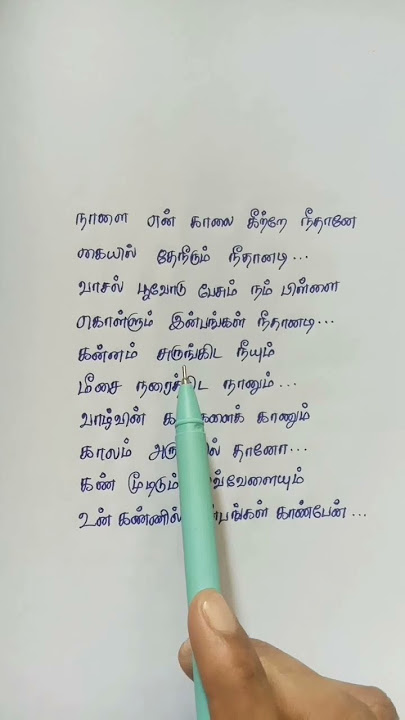 நாளை என் காலை கீற்றே நீதானே
கையில் தேநீரும் நீதானடி...
வாசல் பூவோடு பேசும் நம் பிள்ளை
கொள்ளும் இன்பங்கள் நீதானடி...
கன்னம் சுருங்கிட நீயும்
மீசை நரைத்திட நானும்...
வாழ்வின் காணும்
காலம் தானோ...
கண் மூடிடும்
உன் கண்ணில் காண்பேன்...